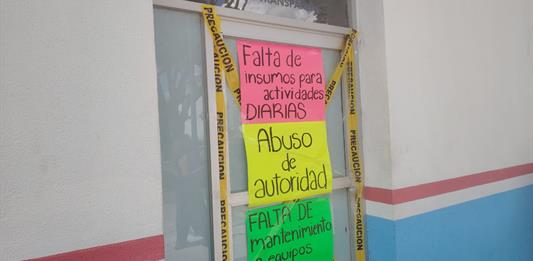 Falta de
insumos para
actividades
DIARIAS
Abuso
de
autoridad
FALTA DE
mantenimiento
equipos
PRECAUCION
PRECAUCION
PRECAUCION
PRECAUCION
PRECAUCION
PRECAUCION